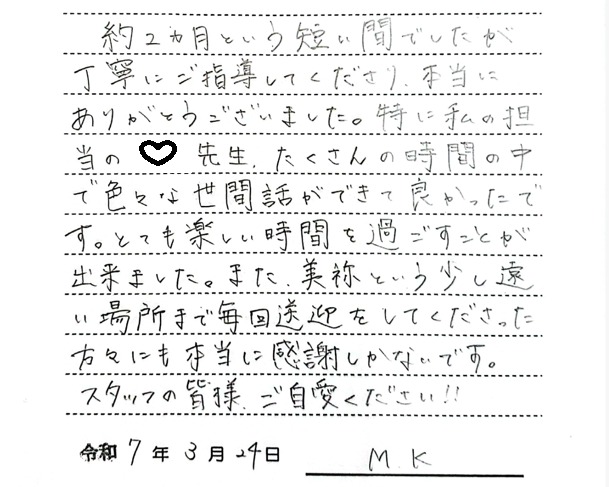 約2カ月という短い間でしたが
丁寧にご指導してくださり、本当に
ありがとうございました。特に私の担
当の 先生、たくさんの時間の中
で色々な世間話ができて良かったで
す。とても楽しい時間を過ごすことが
出来ました。また、美祢という少し遠
い場所まで毎回送迎をしてくださった
方々にも本当に感謝しかないです。
スタッフの皆様、ご自愛ください!!
令和7年3月24日 M.K